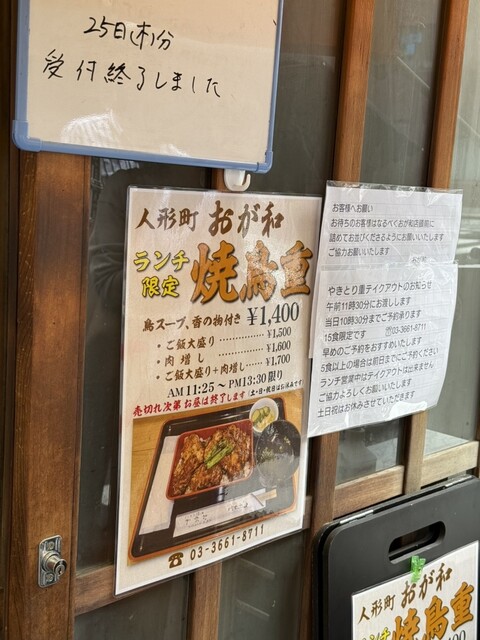 25日(木)分
受付終了しました
人形町 おが和
ランチ
限定
焼鳥重
鳥スープ、香の物付き ¥1,400
・ご飯大盛り ………… ¥1,500
・肉増し ………… ¥1,600
・ご飯大盛り+肉増し … ¥1,700
AM 11:25 ～ PM13:30 限り
売切れ次第 お昼は終了します (土・日・祝日はお休みです)
☎ 03-3661-8711
お客様へお願い
お待ちのお客様はなるべくおが和店頭前に
詰めてお並びくださるようにお願いいたします
ご協力お願いいたします
おが和
やきとり重テイクアウトのお知らせ
午前11時30分にお渡しします
当日10時30分までご予約承ります
15食限定です ☎03-3661-8711
早めのご予約をおすすめいたします
5食以上の場合は前日までにご予約ください
ランチ営業中はテイクアウトは出来ません
ご協力よろしくお願いいたします
土日祝はお休みさせていただきます
人形町 おが和
焼鳥重